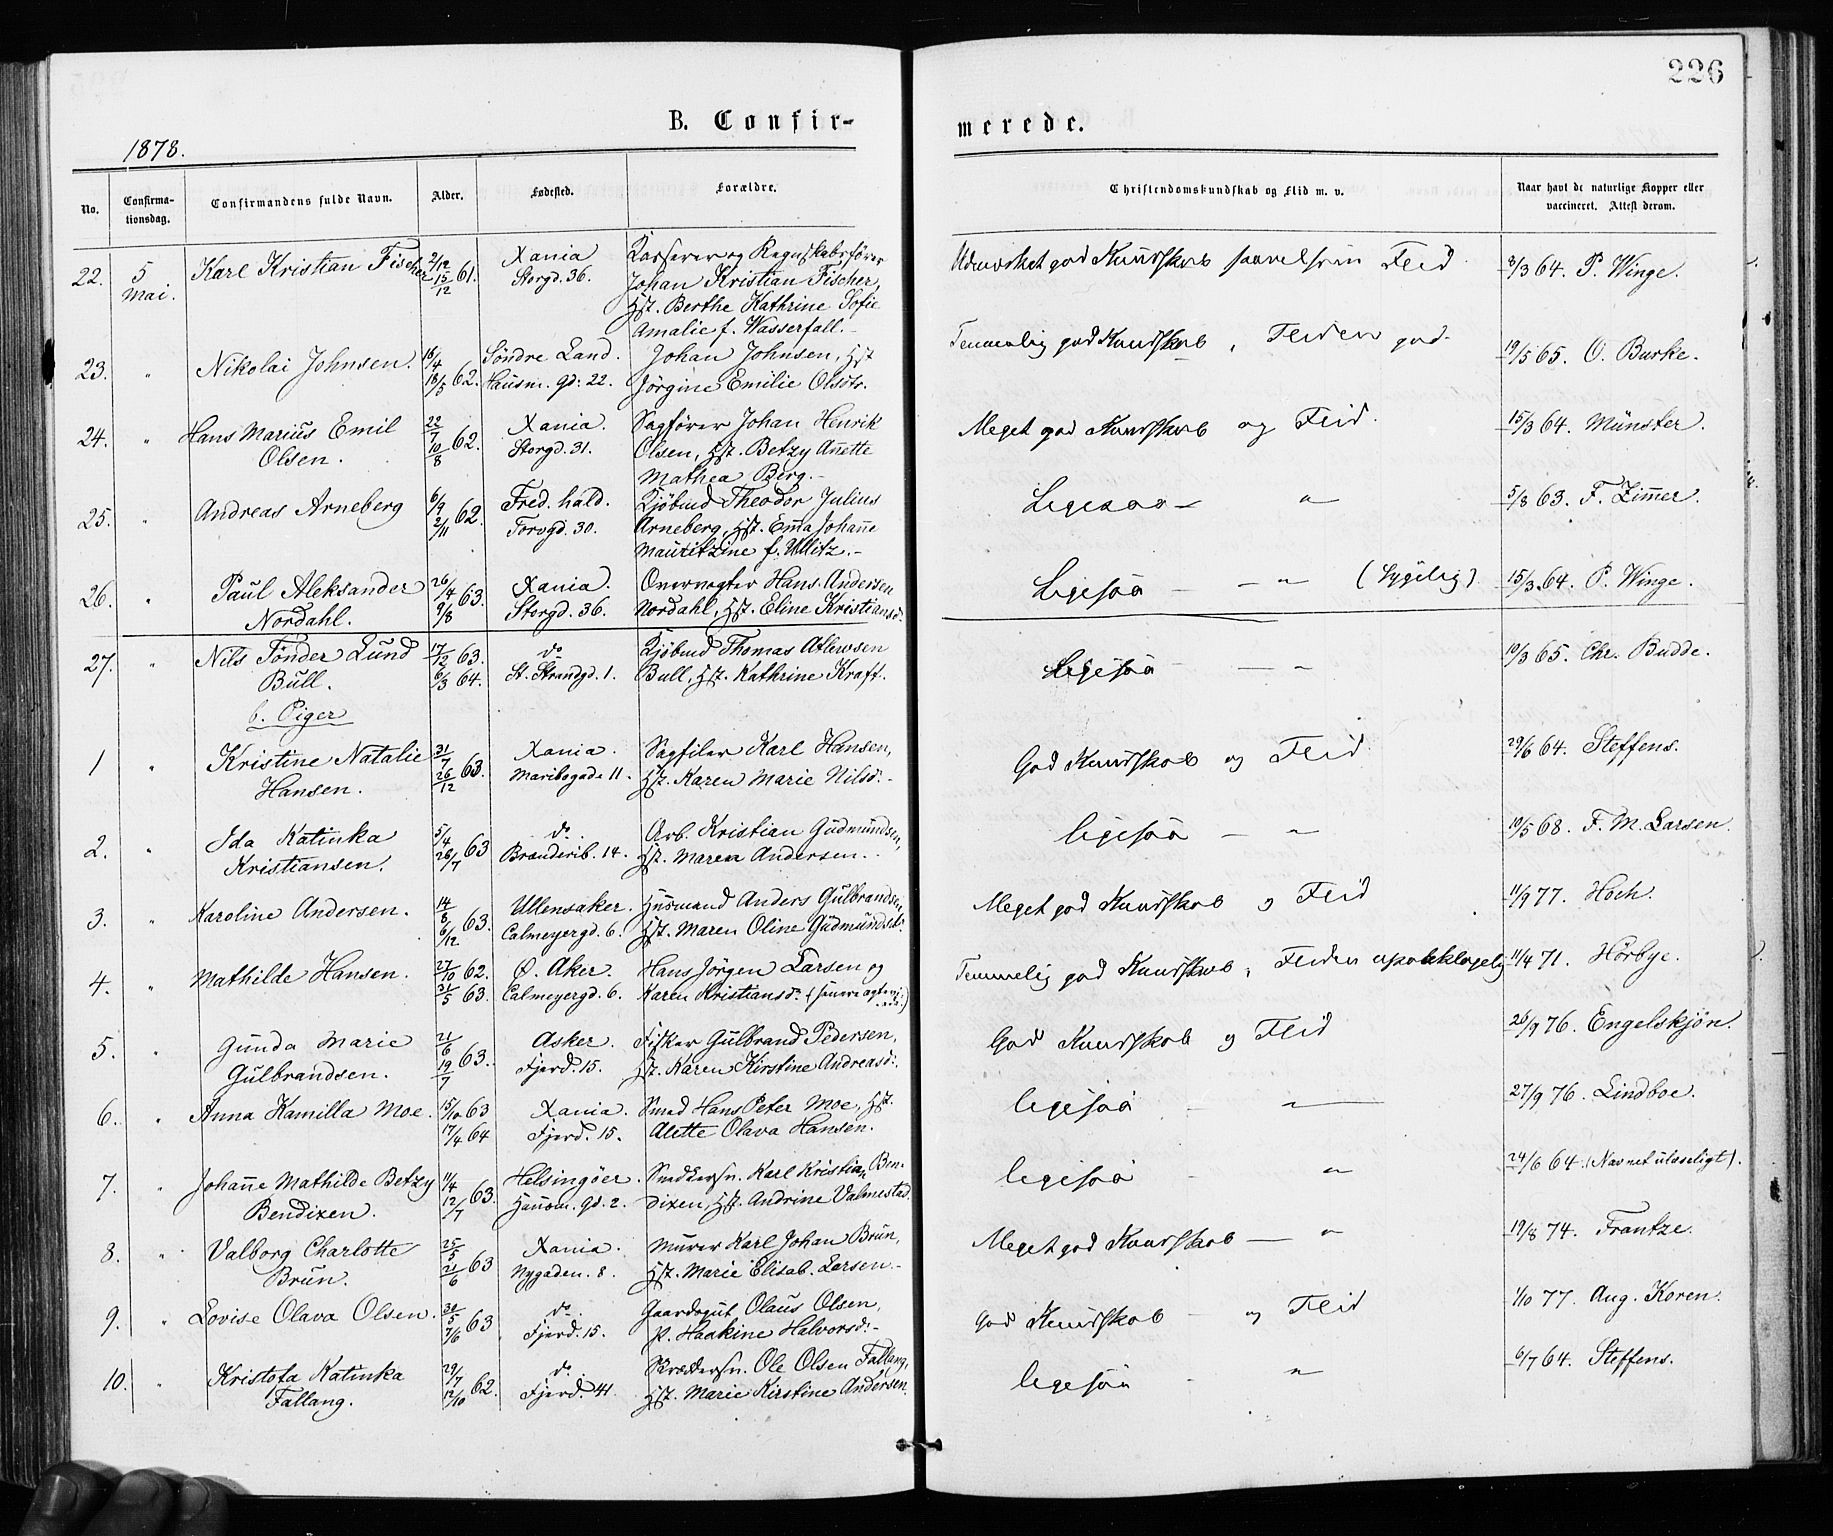 226
B. Confir-
merede.
1878.
No.
Confirma-
tionsdag.
Confirmandens fulde Navn.
Alder.
Fødested.
Forældre.
Christendomskundskab og Flid m. v.
Naar havt de naturlige Kopper eller
vaccineret. Attest derom.
22. 5 Mai. Karl Kristian Fischer 2/12 15/12 61. Xania Storgd. 36.
Kasserer og Regnskabsfører
Johan Kristian Fischer,
Hst. Berthe Kathrine Sofie
Amalie f. Wasserfall.-
Udmærket god Kundskab saavelsom Flid 8/3 64. P. Winge.
23. " Nikolai Johnsen. 18/4 18/5 62. Søndre Land. Hausm. gd: 22.
Johan Johnsen, Hst
Jörgine Emilie Olsdtr.
Temmelig god Kundskab, Fliden god. 19/5 65. O. Burke.
24. " Hans Marius Emil
Olsen. 22/7 10/8 62. Xania. Storgd. 31.
Sagfører Johan Henrik
Olsen, Hst. Betzy Anette
Mathea Berg.-
Meget god Kundskab og Flid. 15/3 64. Münster.
25. " Andreas Arneberg 6/9 2/11 62. Fred. hald. Torvgd. 30.
Kjöbmd Theodor Julius
Arneberg, Hst. Emma Johanne
Mauritzine f. Ullitz.-
Ligesaa - " 5/8 63. F. Zimmer.
26. " Paul Aleksander
Nordahl. 26/4 9/8 63. Xania. Storgd. 36.
Overvagter Hans Andersen
Nordahl, Hst. Eline Kristiansd.
Ligesaa - " (Sygelig) 15/3 64. P. Winge.
27. " Nils Tönder Lund
Bull. 17/12 63. 6/3 64. do St. Strandgd. 1.
Kjöbmd Thomas Atlewsen
Bull, Hst. Kathrine Kraft.
Ligesaa - " 10/3 65. Chr. Budde.
b. Piger
1 " Kristine Natalie
Hansen. 31/7 26/12 63. Xania. Maribogade 11.
Sagfiler Karl Hansen,
Hst. Karen Marie Nilsd:-
God Kundskab og Flid 29/6 64. Steffens.
2. " Ida Katinka
Kristiansen. 5/4 26/7 63 do Brænderib. 14.
Arb. Kristian Gudmundsen,
Hst. Maren Andersen.
ligesaa - " 19/5 68. F. M. Larsen.
3. " Karoline Andersen. 14/8 6/12 63. Ullensaker. Calmeyergd. 6.
Husmand Anders Gulbrandsen
Hst. Maren Oline Gudmundsd:
Meget god Kundskab og Flid 11/9 77. Hoch.
4. " Mathilde Hansen. 27/10 62. 31/5 63. Ö. Aker. Calmeyergd. 6.
Hans Jörgen Larsen og
Karen Kristiansd:
Temmelig god Kundskab, Fliden upaaklagelig 11/4 71. Hörbye.
5. " Gunda Marie
Gulbrandsen. 21/6 19/7 63. Asker. Fjerd. 15.
Fisker Gulbrand Pedersen,
Hst. Karen Kirstine Andreasd:.
God Kundskab og Flid 26/9 76. Engelskjön.
6. " Anna Kamilla Moe. 15/10 63 17/4 64 Xania. Fjerd. 15.
Smed Hans Peter Moe, Hst.
Alette Olava Hansen.
ligesaa - 27/9 76. Lindboe.
7. " Johanne Mathilde Betzy
Bendixen. 11/4 12/7 63. Helsingöer. Hausm. gd. 2.
Smedkersv. Karl Kristian Ben-
dixen, Hst. Andrine Valmestad.
ligesaa - " 24/6 64. (Navnet ulæseligt).
8. " Valborg Charlotte
Brun. 25/5 21/6 63 Xania. Nygaden. 8.
Murer Karl Johan Brun,
Hst. Marie Elisab. Larsen-
Meget god Kundskab - " 19/8 74. Frantze.
9. " Lovise Olava Olsen. 30/5 7/6 63 do Fjerd. 15.
Gaardsgut Olaus Olsen,
p. Haakine Halvorsd:-
God Kundskab - og Flid 1/10 77. Aug. Koren.
10. " Kristofa Katinka
Fallang. 29/7 12/10 62. do Fjerd. 41.
Skræddersv. Ole Olsen Fallang,
Hst. Marie Kirstine Andersen.
ligesaa - " 6/7 64. Steffens.